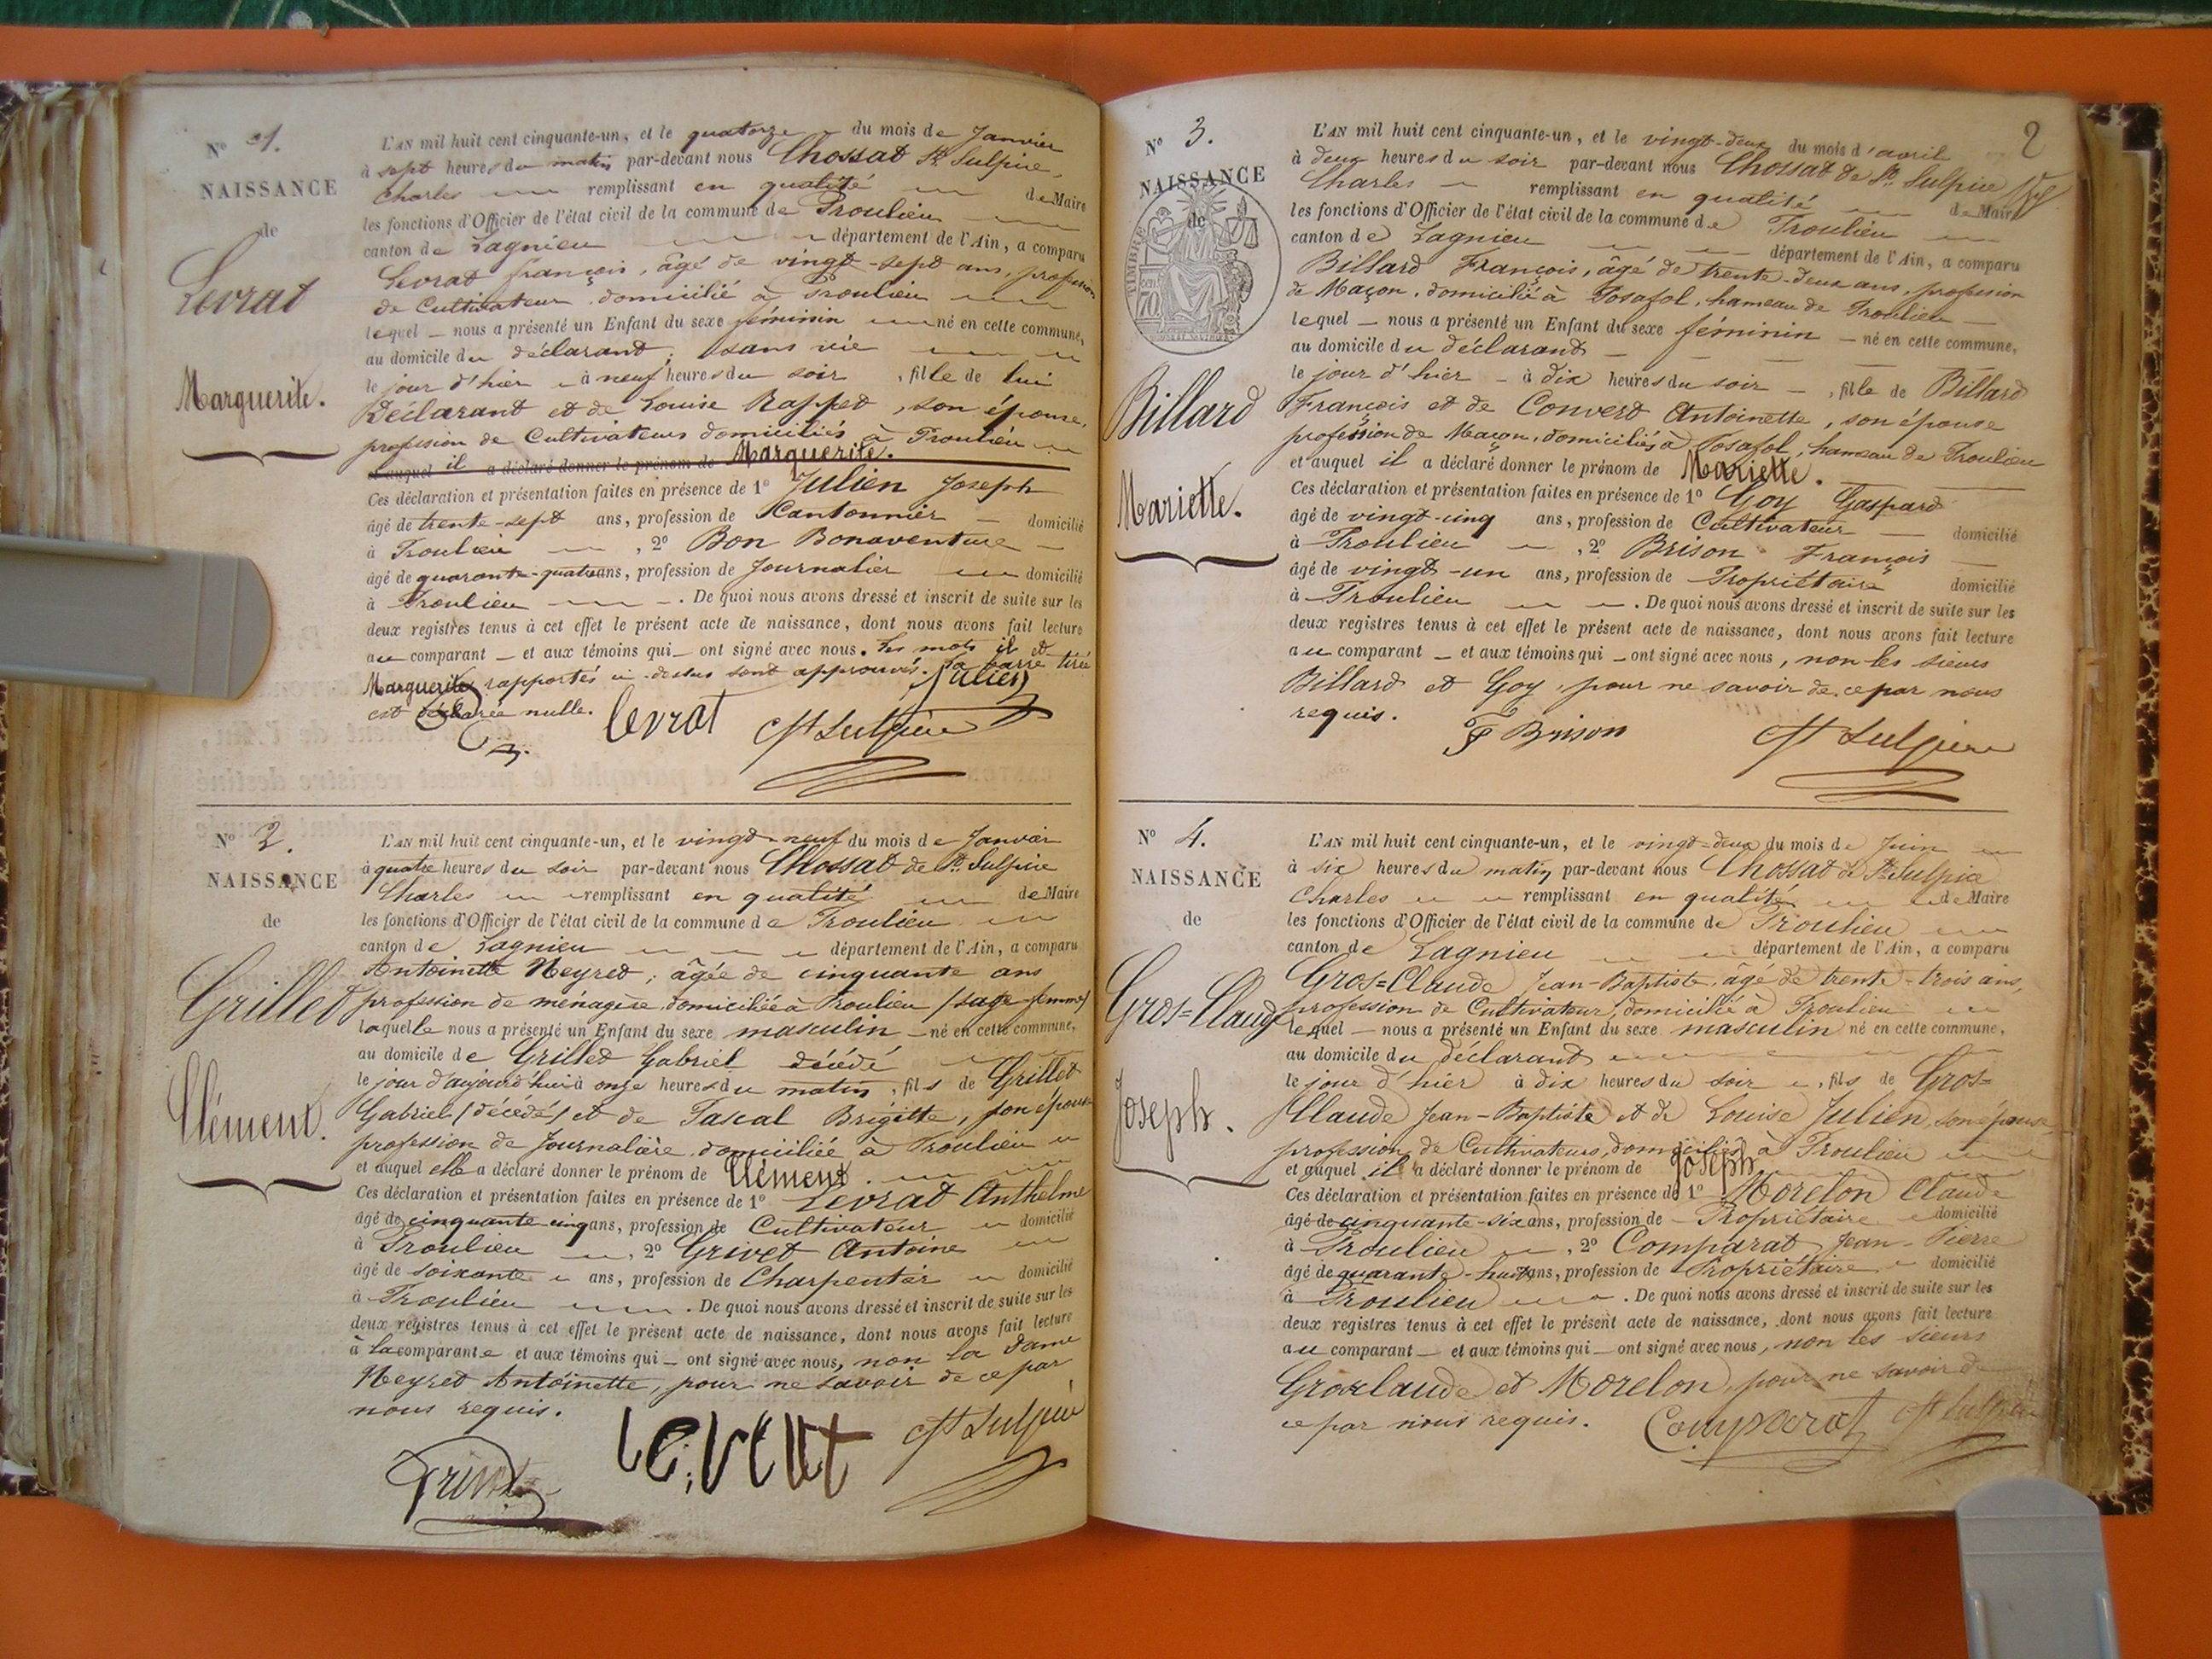 N° 1.
NAISSANCE
de
Levrat
Marguerite.
L'AN mil huit cent cinquante-un, et le quatorze du mois de Janvier
à sept heures du matin par-devant nous Chossat St. Sulpice,
Charles remplissant en qualité de Maire
les fonctions d'Officier de l'état civil de la commune de Proulieu
canton de Lagnieu département de l'Ain, a comparu
Levrat françois, âgé de vingt-sept ans, profession
de Cultivateur, domicilié à Proulieu
lequel nous a présenté un Enfant du sexe féminin né en cette commune,
au domicile du déclarant, sans vie
le jour d'hier à neuf heures du soir, fille de lui
Déclarant et de Louise Rappet, son épouse,
profession de Cultivateurs domiciliés à Proulieu
et auquel il a déclaré donner le prénom de Marguerite.
Ces déclaration et présentation faites en présence de 1° Julien Joseph
âgé de trente-sept ans, profession de Cantonnier domicilié
à Proulieu, 2° Bon Bonaventure
âgé de quarante-quatre ans, profession de Journalier domicilié
à Proulieu. De quoi nous avons dressé et inscrit de suite sur les
deux registres tenus à cet effet le présent acte de naissance, dont nous avons fait lecture
au comparant et aux témoins qui ont signé avec nous. Les mots il et
Marguerite rapportés ci-dessus sont approuvés. La barre tirée
est déclarée nulle.
Julien
Levrat
Ch St Sulpice
N° 2.
NAISSANCE
de
Grillet
Clément.
L'AN mil huit cent cinquante-un, et le vingt-neuf du mois de Janvier
à quatre heures du soir par-devant nous Chossat de St. Sulpice
Charles remplissant en qualité de Maire
les fonctions d'Officier de l'état civil de la commune de Proulieu
canton de Lagnieu département de l'Ain, a comparu
Antoinette Neyret, âgée de cinquante ans
profession de ménagère, domiciliée à Proulieu (sage-femme)
laquelle nous a présenté un Enfant du sexe masculin né en cette commune,
au domicile de Grillet Gabriel décédé
le jour d'aujourd'hui à onze heures du matin, fils de Grillet
Gabriel (décédé) et de Pascal Brigitte, son épouse
profession de Journalière, domiciliée à Proulieu
et auquel elle a déclaré donner le prénom de Clément.
Ces déclaration et présentation faites en présence de 1° Levrat Anthelme
âgé de cinquante-cinq ans, profession de Cultivateur domicilié
à Proulieu, 2° Grivet Antoine
âgé de soixante ans, profession de Charpentier domicilié
à Proulieu. De quoi nous avons dressé et inscrit de suite sur les
deux registres tenus à cet effet le présent acte de naissance, dont nous avons fait lecture
à la comparante et aux témoins qui ont signé avec nous, non la Dame
Neyret Antoinette, pour ne savoir de ce par
nous requis.
Levrat
Ch St Sulpice
Grivet
2
N° 3.
NAISSANCE
de
TIMBRE
70
Billard
Mariette.
L'AN mil huit cent cinquante-un, et le vingt-deux du mois d'avril
à deux heures du soir par-devant nous Chossat de St. Sulpice
Charles remplissant en qualité de Maire
les fonctions d'Officier de l'état civil de la commune de Proulieu
canton de Lagnieu département de l'Ain, a comparu
Billard François, âgé de trente-deux ans, profession
de Maçon, domicilié à Posafol, hameau de Proulieu
lequel nous a présenté un Enfant du sexe féminin né en cette commune,
au domicile du déclarant
le jour d'hier à dix heures du soir, fille de Billard
François et de Convert Antoinette, son épouse
profession de Maçon, domiciliés à Posafol, hameau de Proulieu
et auquel il a déclaré donner le prénom de Mariette.
Ces déclaration et présentation faites en présence de 1° Goy Gaspard
âgé de vingt-cinq ans, profession de Cultivateur domicilié
à Proulieu, 2° Brison François
âgé de vingt-un ans, profession de Propriétaire domicilié
à Proulieu. De quoi nous avons dressé et inscrit de suite sur les
deux registres tenus à cet effet le présent acte de naissance, dont nous avons fait lecture
au comparant et aux témoins qui ont signé avec nous, non les sieurs
Billard et Goy, pour ne savoir de ce par nous
requis.
F Brison
Ch St Sulpice
N° 4.
NAISSANCE
de
Gros=Claude
Joseph.
L'AN mil huit cent cinquante-un, et le vingt-deux du mois de Juin
à six heures du matin par-devant nous Chossat de St. Sulpice
Charles remplissant en qualité de Maire
les fonctions d'Officier de l'état civil de la commune de Proulieu
canton de Lagnieu département de l'Ain, a comparu
Gros=Claude Jean-Baptiste, âgé de trente-trois ans,
profession de Cultivateur, domicilié à Proulieu
lequel nous a présenté un Enfant du sexe masculin né en cette commune,
au domicile du déclarant
le jour d'hier à dix heures du soir, fils de Gros=
Claude Jean-Baptiste et de Louise Julien, son épouse
profession de Cultivateurs, domiciliés à Proulieu
et auquel il a déclaré donner le prénom de Joseph
Ces déclaration et présentation faites en présence de 1° Morelon Claude
âgé de cinquante-six ans, profession de Propriétaire domicilié
à Proulieu, 2° Comparat Jean-Pierre
âgé de quarante-huit ans, profession de Propriétaire domicilié
à Proulieu. De quoi nous avons dressé et inscrit de suite sur les
deux registres tenus à cet effet le présent acte de naissance, dont nous avons fait lecture
au comparant et aux témoins qui ont signé avec nous, non les sieurs
Grosclaude et Morelon, pour ne savoir de
ce par nous requis.
Comparat
Ch St Sulpice